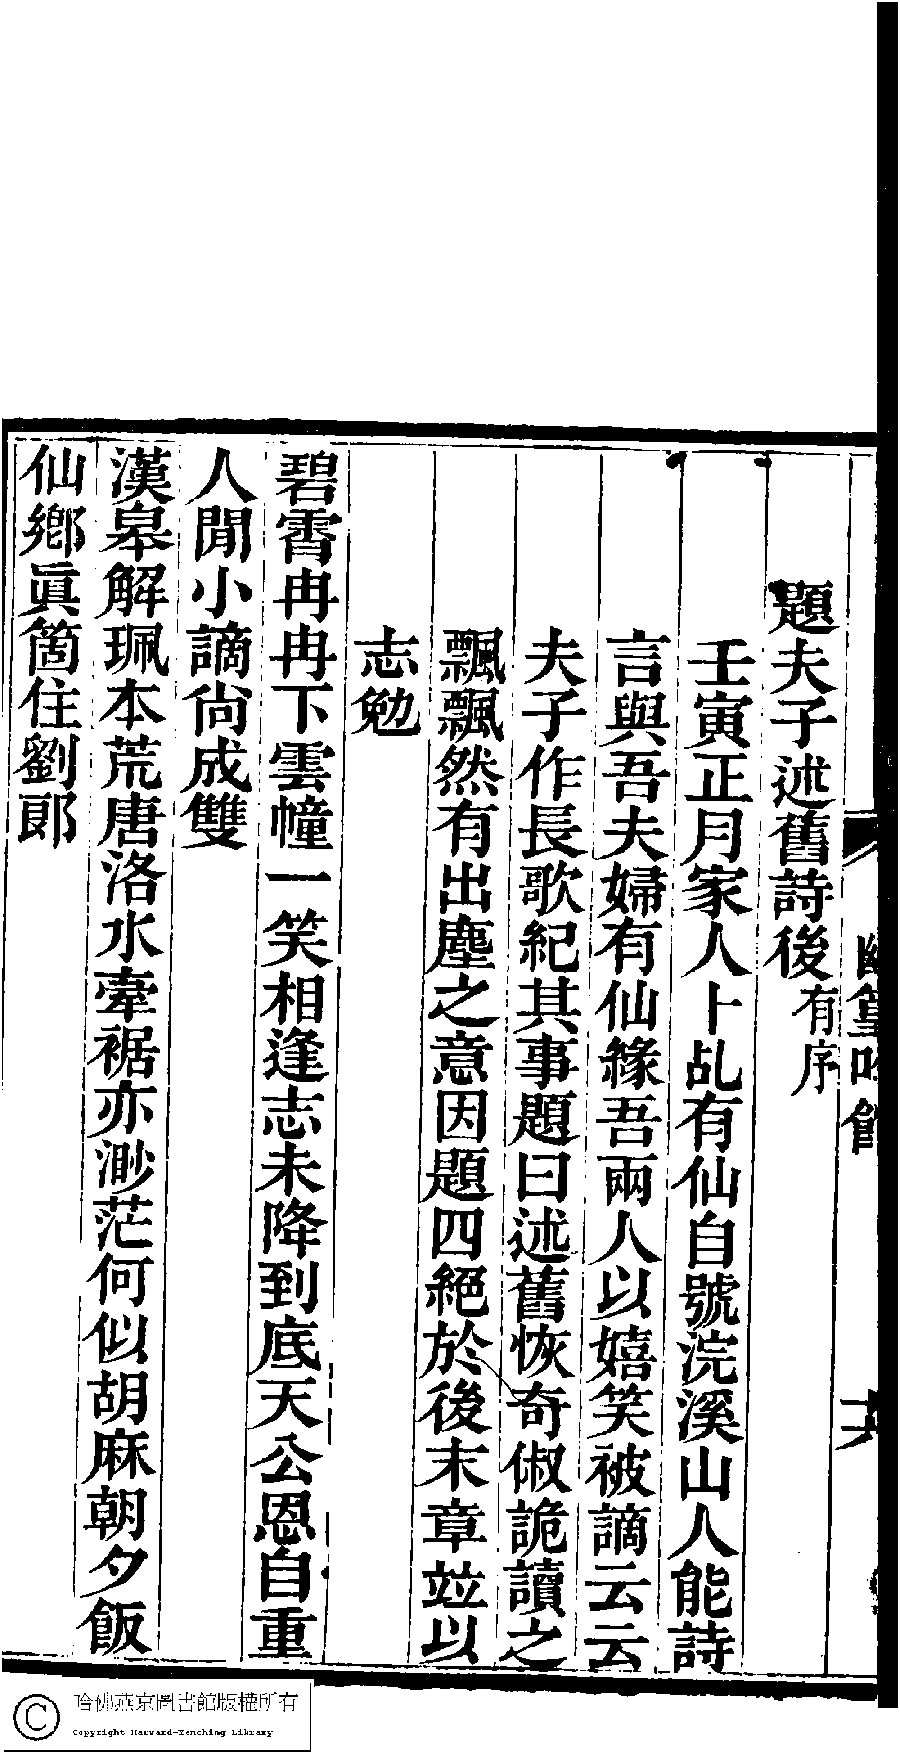 題夫子述舊詩後有序
壬寅正月家人卜乩有仙自號浣溪山人能詩
言與吾夫婦有仙緣吾兩人以嬉笑被謫云云
夫子作長歌紀其事題曰述舊恢奇俶詭讀之
飄飄然有出塵之意因題四絕於後末章竝以
志勉
碧霄冉冉下雲幢一笑相逢志未降到底天公恩自重
人閒小謫尙成雙
漢皋解珮本荒唐洛水牽裾亦渺茫何似胡麻朝夕飯
仙鄉眞箇住劉郎
哈佛燕京圖書館版權所有
Copyright Harvard-Yenching Library